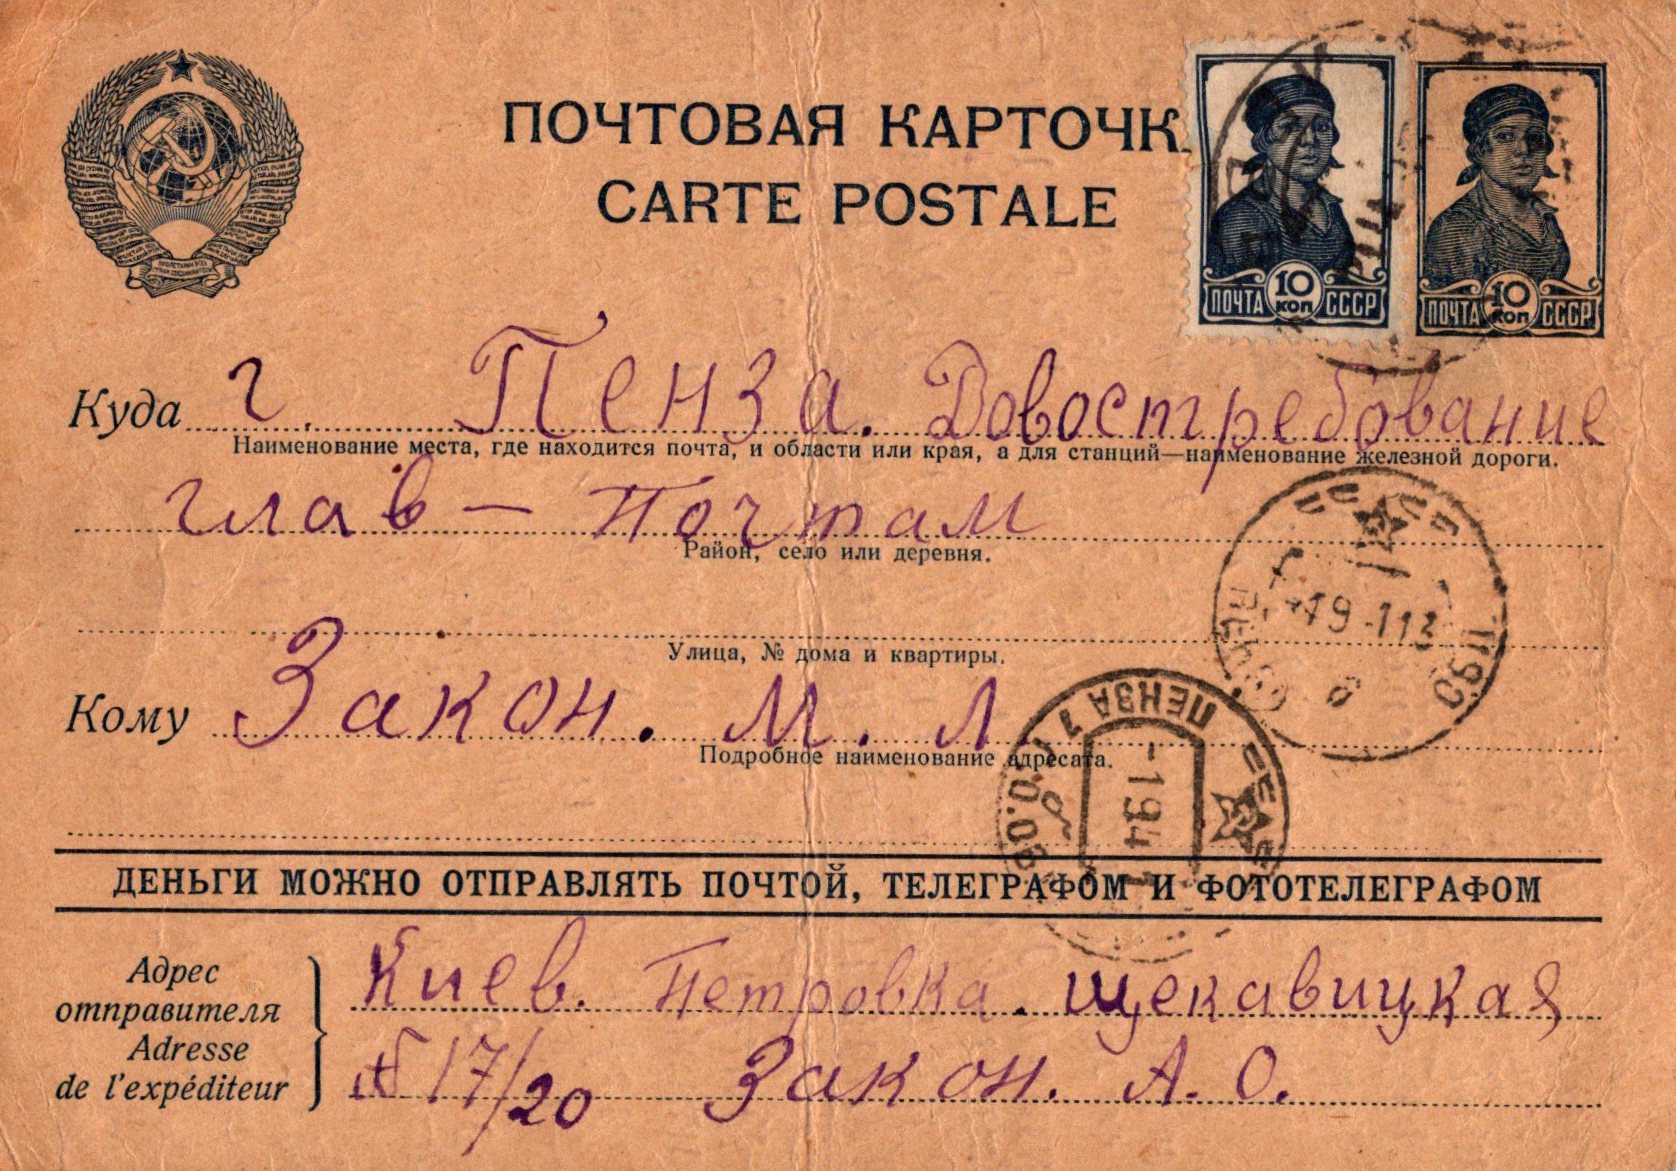 ПОЧТОВАЯ КАРТОЧК
CARTE POSTALE
ПОЧТА 10 КОП СССР
ПОЧТА 10 КОП СССР
Куда г. Пенза. Довостребование
Наименование места, где находится почта, и области или края, а для станций—наименование железной дороги.
глав – Почтам
Район, село или деревня.
Улица, № дома и квартиры.
Кому Закон. М. Л.
Подробное наименование адресата.
ПЕНЗА
ДЕНЬГИ МОЖНО ОТПРАВЛЯТЬ ПОЧТОЙ, ТЕЛЕГРАФОМ И ФОТОТЕЛЕГРАФОМ
Адрес отправителя
Adresse de l'expéditeur
Киев. Петровка. щекавицкая
№ 17/20 Закон. А. О.